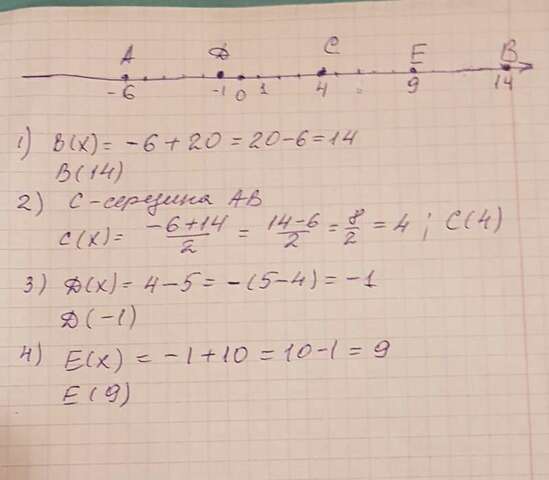 A D C E B
-6 -1 0 1 4 9 14
1) B(x) = -6 + 20 = 20 - 6 = 14
B(14)
2) C - середина AB
C(x) = \frac{-6+14}{2} = \frac{14-6}{2} = \frac{8}{2} = 4 ; C(4)
3) D(x) = 4 - 5 = -(5-4) = -1
D(-1)
4) E(x) = -1 + 10 = 10 - 1 = 9
E(9)